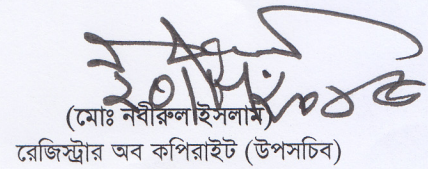 (মোঃ নবীরুল ইসলাম)
রেজিস্ট্রার অব কপিরাইট (উপসচিব)